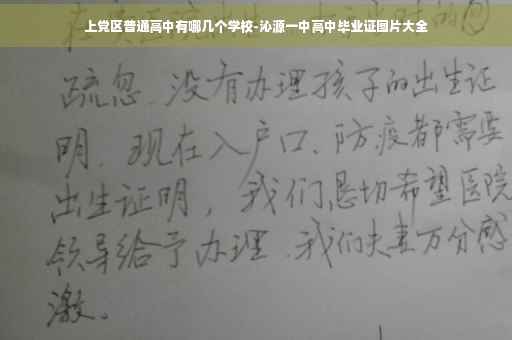 上党区普通高中有哪几个学校-沁源一中高中毕业证图片大全
疏忽、没有办理孩子的出生证
明、现在入户口、防疫都需要
出生证明，我们恳切希望医院
领导给予办理、我们夫妻万分感
激。